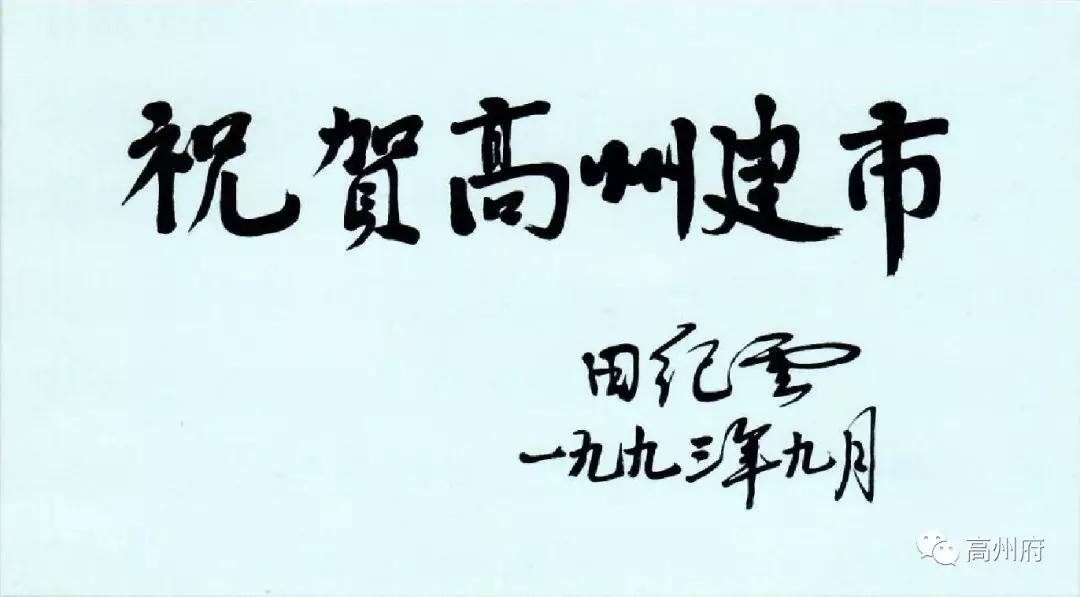 祝賀高州建市
田纪雲
一九九三年九月
高州府